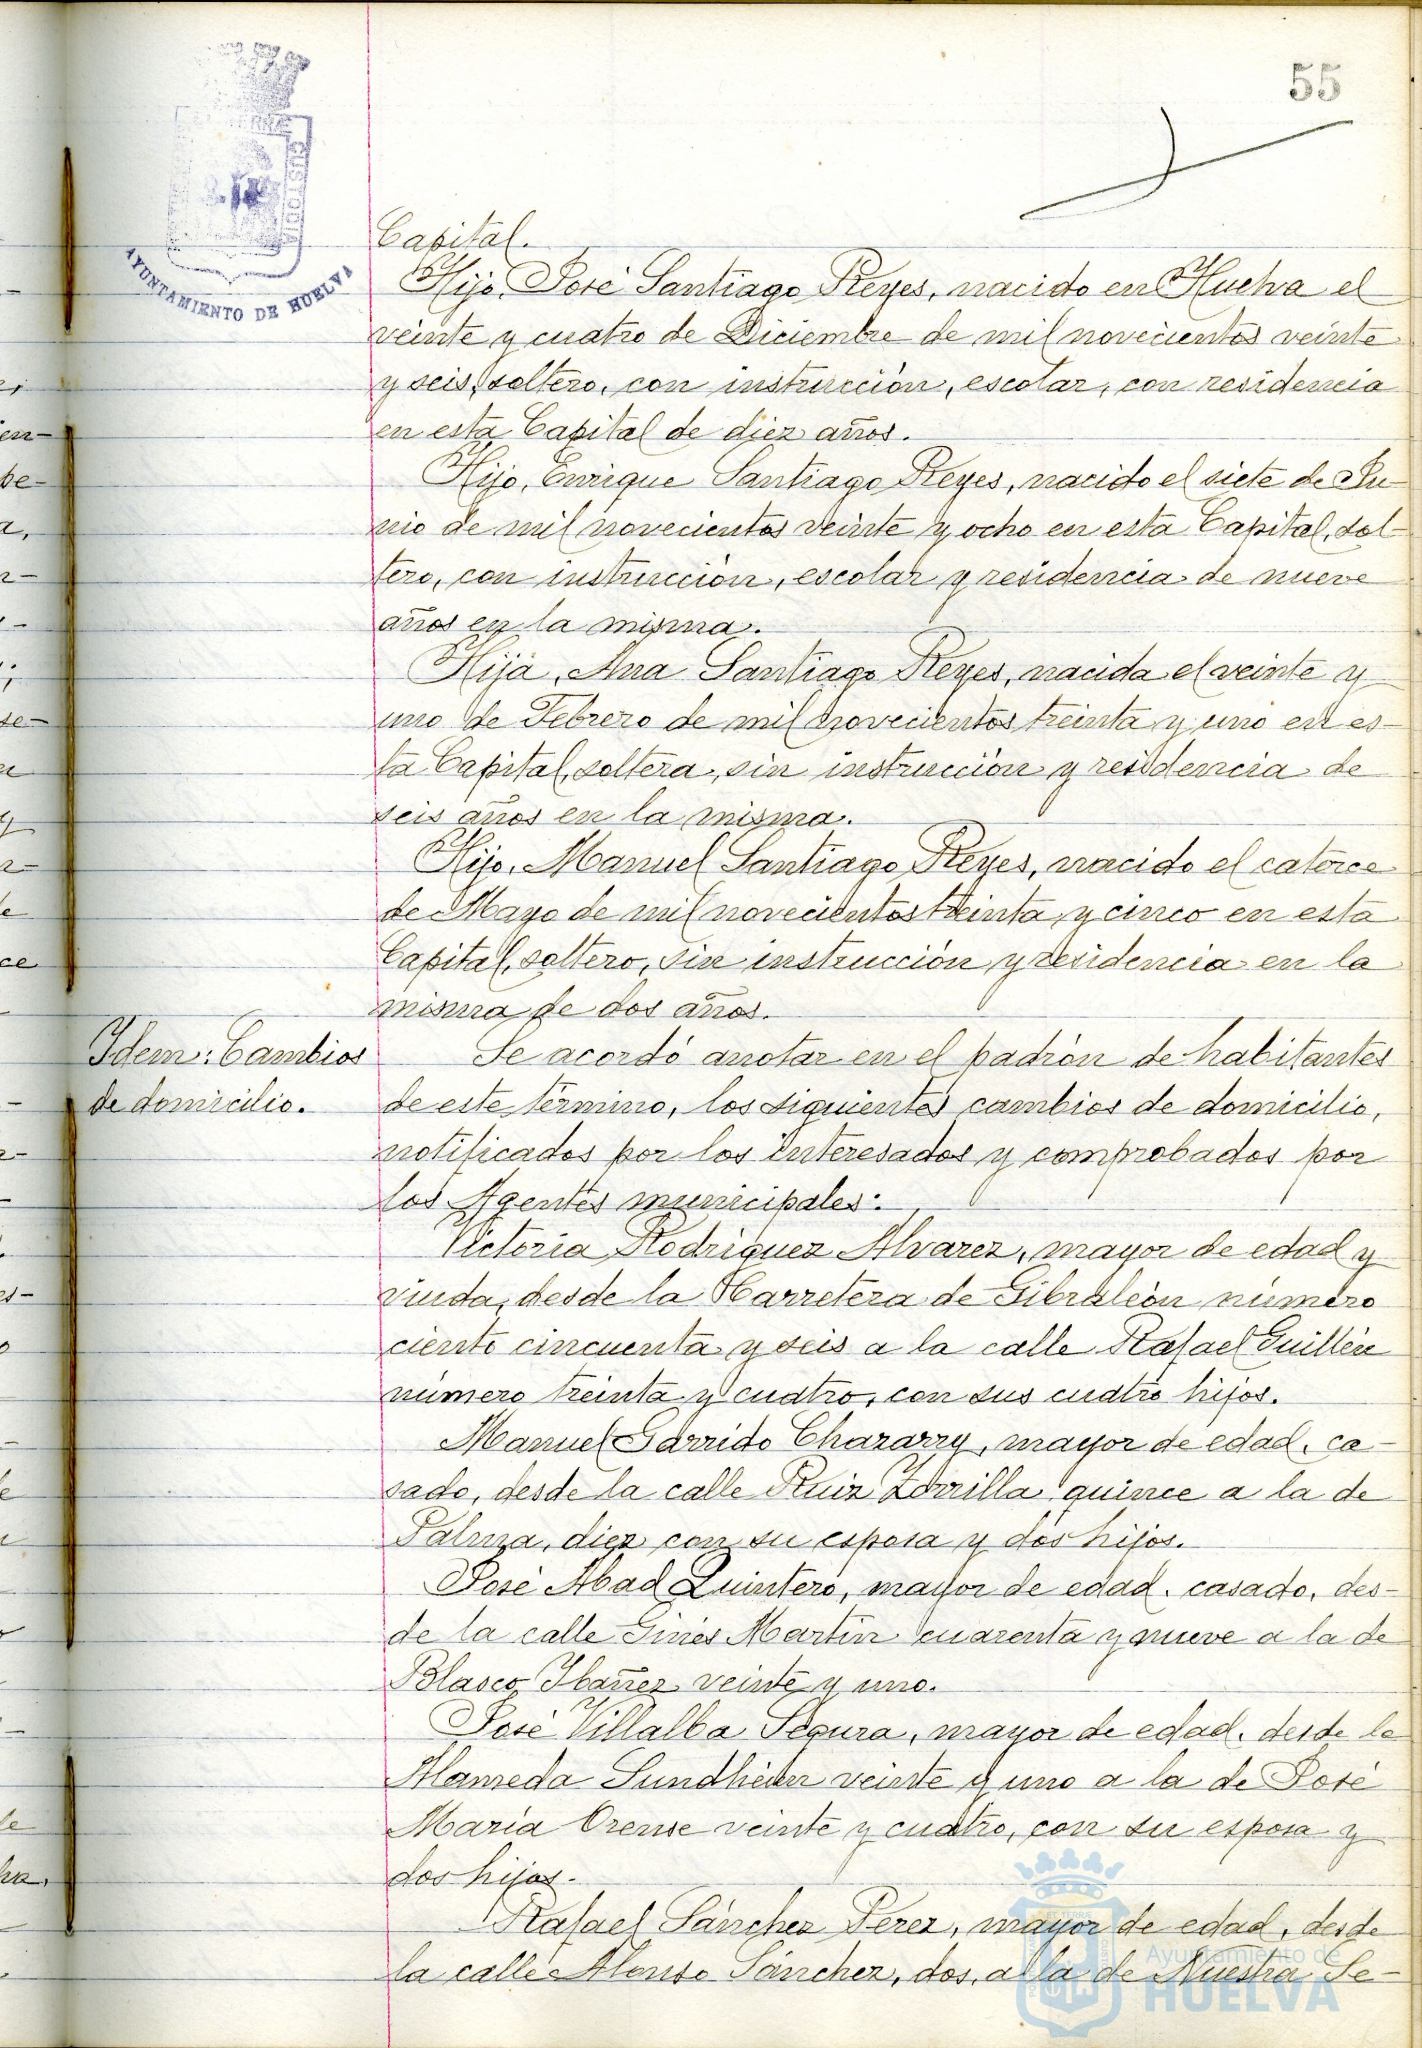 55
AYUNTAMIENTO DE HUELVA
CUSTODIA
Capital.
Hijo, José Santiago Reyes, nacido en Huelva el
veinte y cuatro de Diciembre de mil novecientos veinte
y seis, soltero, con instrucción, escolar, con residencia
en esta Capital de diez años.
Hijo, Enrique Santiago Reyes, nacido el siete de Ju-
nio de mil novecientos veinte y ocho en esta Capital, sol-
tero, con instrucción, escolar y residencia de nueve
años en la misma.
Hija, Ana Santiago Reyes, nacida el veinte y
uno de Febrero de mil novecientos treinta y uno en es-
ta Capital, soltera, sin instrucción y residencia de
seis años en la misma.
Hijo, Manuel Santiago Reyes, nacido el catorce
de Mayo de mil novecientos treinta y cinco en esta
Capital, soltero, sin instrucción y residencia en la
misma de dos años.
Idem: Cambios
de domicilio.
Se acordó anotar en el padrón de habitantes
de este término, los siguientes cambios de domicilio,
notificados por los interesados y comprobados por
los Agentes municipales:
Victoria Rodriguez Alvarez, mayor de edad y
viuda, desde la Carretera de Gibraleón número
ciento cincuenta y seis a la calle Rafael Guillén
número treinta y cuatro, con sus cuatro hijos.
Manuel Garrido Chazarry, mayor de edad, ca-
sado, desde la calle Ruiz Zorrilla quince a la de
Palma, diez con su esposa y dos hijos.
José Abad Quintero, mayor de edad, casado, des-
de la calle Ginés Martín cuarenta y nueve a la de
Blasco Ibañez veinte y uno.
José Villalba Segura, mayor de edad, desde la
Alameda Sundheim veinte y uno a la de José
María Orense veinte y cuatro, con su esposa y
dos hijos.
Rafael Sánchez Pérez, mayor de edad, desde
la calle Alonso Sánchez, dos, a la de Nuestra Se-
Ayuntamiento de
HUELVA